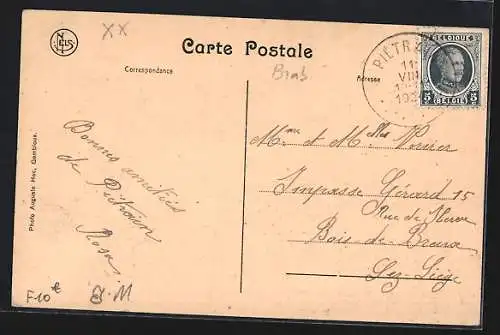 XX
NELS
Carte Postale
Correspondance
Brab
Adresse
PIÉTR
11
VIII
193
BELGIQUE
5 5
BELGIË
Bonnes amitiés
de Piétrain
Rosa
Photo Auguste Hax, Gembloux.
Mme et Melles
Impasse Gérard 15
Rue de Herve
Bois-de-Breux
Lez-Liège
F10€
J.M